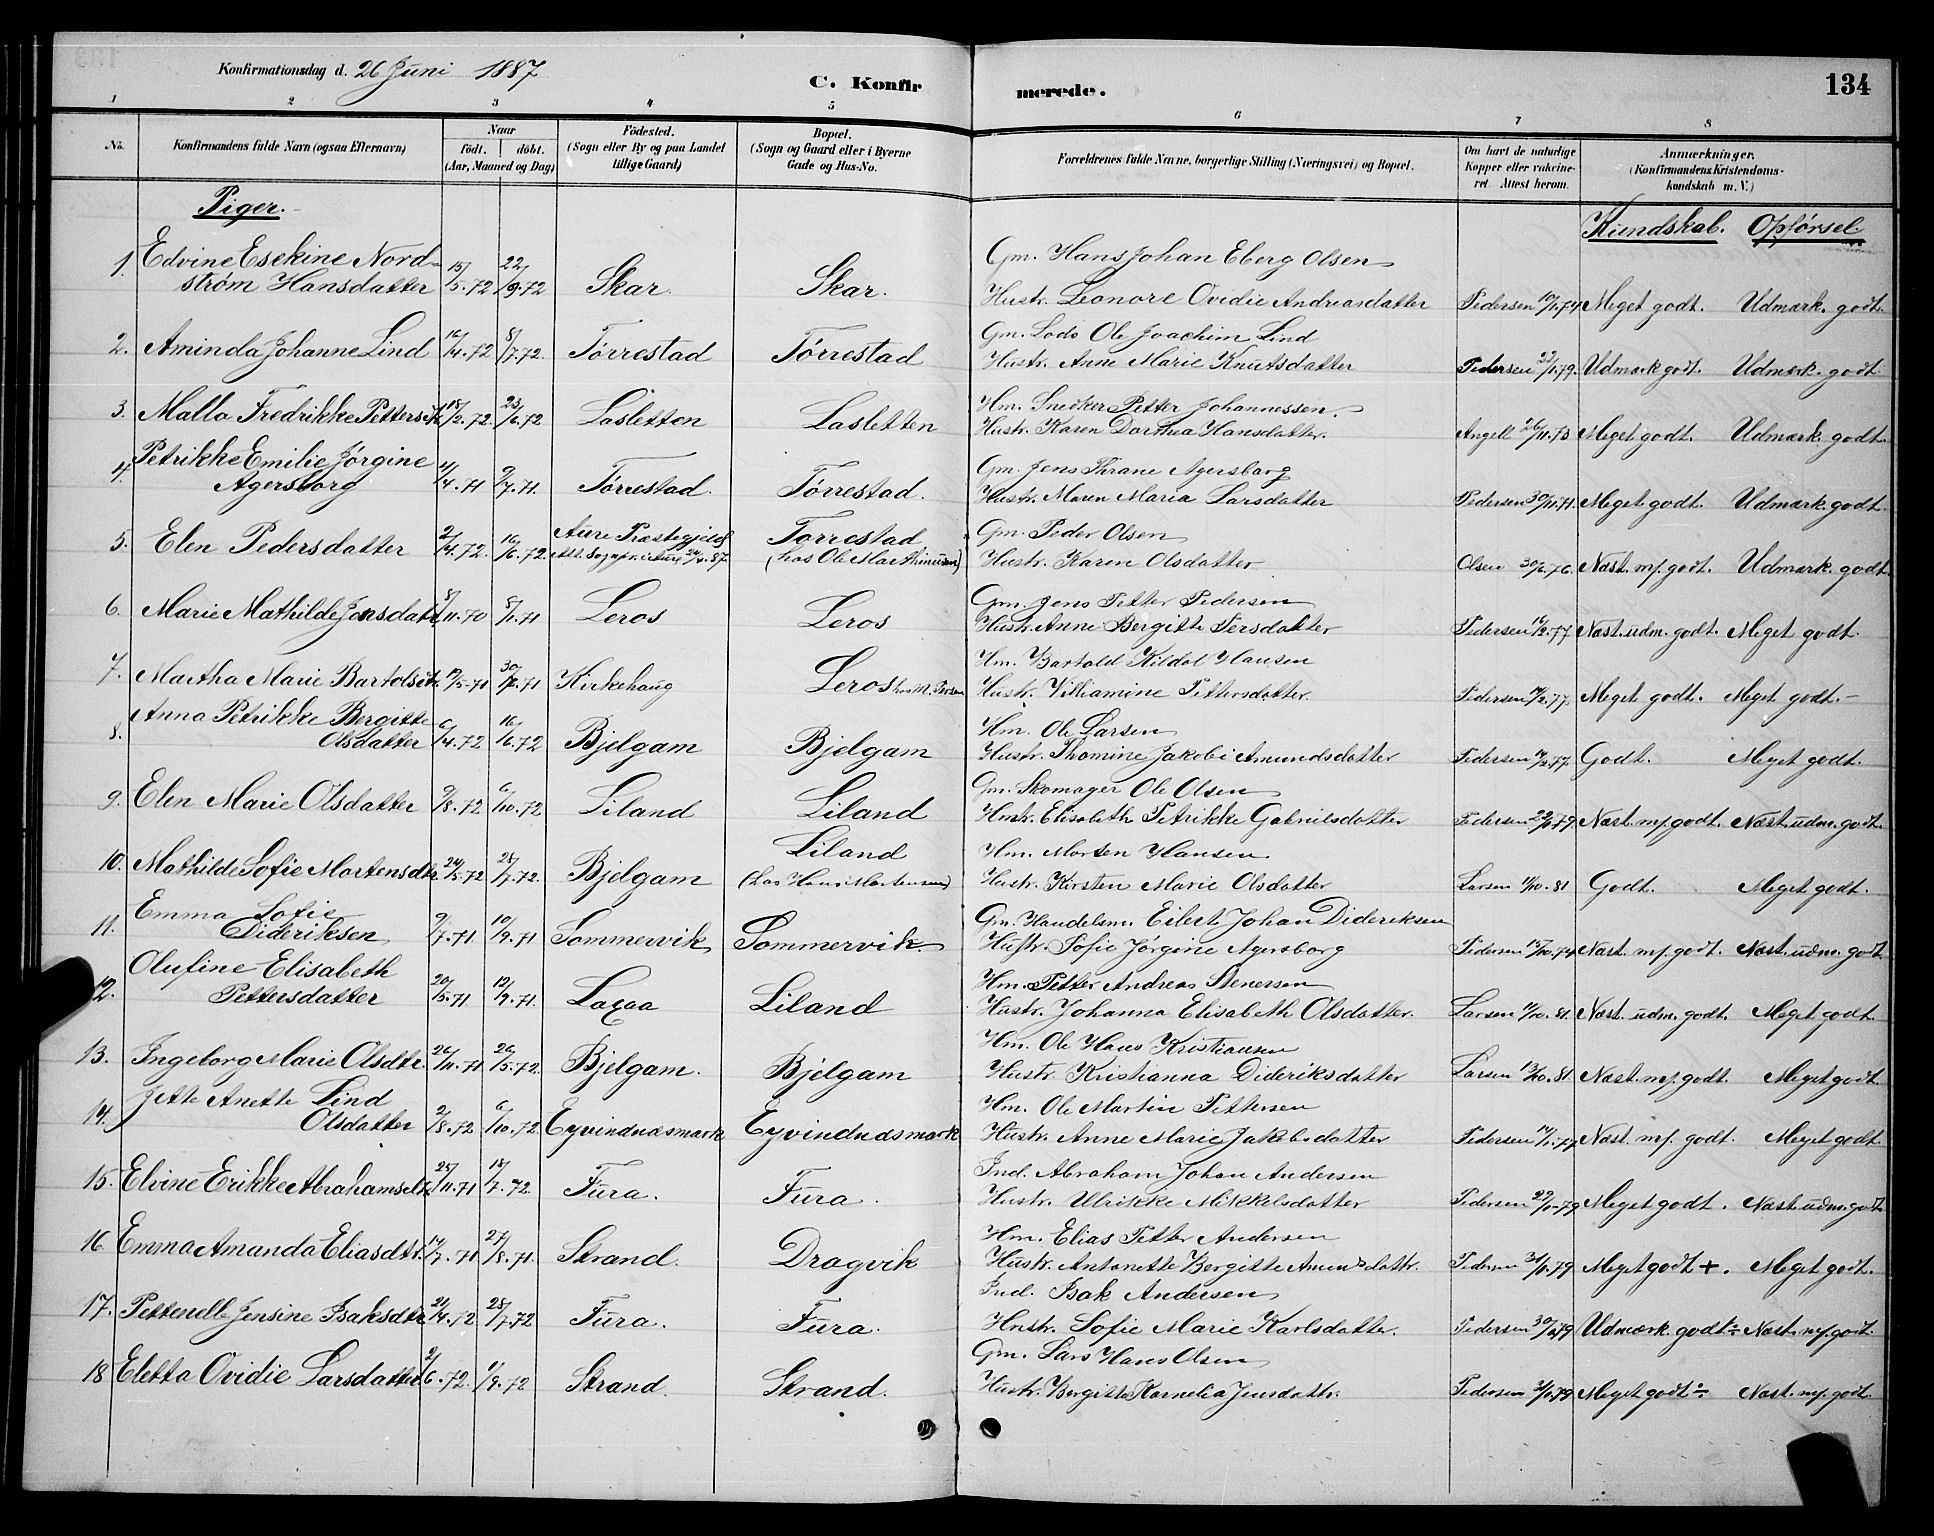 Konfirmationsdag d. 26 Juni 1887
C. Konfirmerede.
134
1 2 3 4 5 6 7 8
No.
Konfirmandens fulde Navn (ogsaa Efternavn)
Naar
födt. döbt.
(Aar, Maaned og Dag)
Födested.
(Sogn eller By og paa Landet
tillige Gaard)
Bopæl.
(Sogn og Gaard eller i Byerne
Gade og Hus-No.
Forældrenes fulde Navne, borgerlige Stilling (Næringsvei) og Bopæl.
Om havt de naturlige
Kopper eller vakcine-
ret. Attest herom.
Anmærkninger.
(Konfirmandens Kristendoms-
kundskab m. V.)
Piger.
Kundskab. Opførsel.
1. Edvine Esekine Nord-
strøm Hansdatter 15/5.72 22/9.72 Skar. Skar.
Gm. Hans Johan Eberg Olsen
Hustr. Leonore Ovidie Andreasdatter Pedersen Meget godt. Udmærk. godt.
2. Aminda Johanne Lind 16/4.72 8/7.72. Tørrestad Tørrestad
Gm. Lods Ole Joachim Lind
Hustr. Anne Marie Knutsdatter Pedersen Udmærk godt. Udmærk. godt.
3. Malla Fredrikke Pettersdtr. 18/2.72. 23/6.72 Lasletten Lasletten
Hm. Snedker Petter Johannessen.
Hustr. Karen Dorthea Hansdatter. Angell 26/11.73 Meget godt. Udmærk. godt.
4. Petrikke Emilie Jørgine
Agersborg 11/4.71 9/7.71. Tørrestad. Tørrestad.
Gm. Jens Thrane Agersborg
Hustr. Maren Maria Larsdatter Pedersen 30/11.71. Meget godt. Udmærk. godt.
5. Elen Pedersdatter 2/4.72. 16/6.72. Aure Præstegjeld
Att. Sognepr. i Aure 24/4.87. Tørrestad
(hos Ole Marthinusen)
Gm. Peder Olsen
Hustr. Karen Olsdatter Olsen 30/6.76. Næst. m/. godt. Udmærk. godt.
6. Marie Mathilde Jensdatt. 8/11.70 8/1.71 Leros Leros
Gm. Jens Petter Pedersen
Hustr. Anne Bergitte Persdatter Pedersen 14/2.77 Næst. udm. godt. Meget godt.
7. Martha Marie Bartolsdtr. 19/5.71 30/7.71 Kirkehaug Leros hos M. Persen
Hm. Bartold Kildal Hansen
Hustr. Villiamine Pettersdatter. Pedersen 14/2.77. Meget godt. Meget godt.
8. Anna Petrikke Bergitte
Olsdatter 6/4.72 16/6.72 Bjelgam Bjelgam
Hm. Ole Larsen
Hustr. Thomine Jakobi Amundsdatter Pedersen 14/2.77. Godt. Meget godt.
9. Elen Marie Olsdatter 9/8.72 6/10.72 Liland Liland
Gm. Skomager Ole Olsen
Hustr. Elisabeth Petrikke Gabrielsdatter Pedersen Næst. m/. godt. Næst. udm. godt.
10. Mathilde Sofie Mortensdtr. 24/5.72 28/7.72. Bjelgam Liland
(hos Hans Mortensen)
Hm. Morten Hansen.
Hustr. Kirsten Marie Olsdatter Larsen 11/10.81 Godt. Meget godt.
11. Emma Sofie
Dideriksen 9/7.71 10/9.71 Sommervik Sommervik
Gm. Handelsm. Eilert Johan Dideriksen
Hustr. Sofie Jørgine Agersborg Pedersen 15/10.74 Næst. m/. godt. Næst. udm. godt.
12. Olufine Elisabeth
Pettersdatter 20/5.71 19/9.71. Laxaa Liland
Hm. Petter Andreas Stenersen
Hustr. Johanna Elisabeth Olsdatter. Larsen 11/10.81. Næst. udm. godt. Meget godt.
13. Ingeborg Marie Olsdtr. 26/11.71 26/5.72. Bjelgam. Bjelgam
Hm. Ole Hans Kristiansen
Hustr. Kristianna Dideriksdatter Larsen 13/10.81. Næst. m/. godt. Meget godt.
14. Jette Anette Lind
Olsdatter 2/8.72 6/10.72. Eyvindnæsmark Eyvindnæsmark
Hm. Ole Martin Pettersen
Hustr. Anne Marie Jakobsdatter Pedersen Næst. m/. godt. Meget godt.
15. Elvine Erikke Abrahamsdtr. 25/11.71 18/7.72. Fura. Fura.
Ind. Abraham Johan Andersen
Hustr. Ulrikke Mikkelsdatter Pedersen Meget godt. Næst. udm. godt.
16 Emma Amanda Eliasdtr. 14/7.71 27/8.71. Strand. Dragvik
Hm. Elias Petter Andersen
Hustr. Antonette Bergitte Amundsdattr. Pedersen Meget godt +. Meget godt.
17. Pettenelle Jensine Isaksdtr. 21/4.72 28/7.72 Fura. Fura.
Ind. Isak Andersen
Hustr. Sofie Marie Karlsdatter. Pedersen Udmærk. godt ÷ Næst. m/. godt.
18 Eletta Ovidie Larsdatter 2/6.72. 1/9.72 Strand. Strand.
Gm. Lars Hans Olsen
Hustr. Bergitte Kornelia Jensdattr. Pedersen Meget godt ÷. Næst. m/. godt.